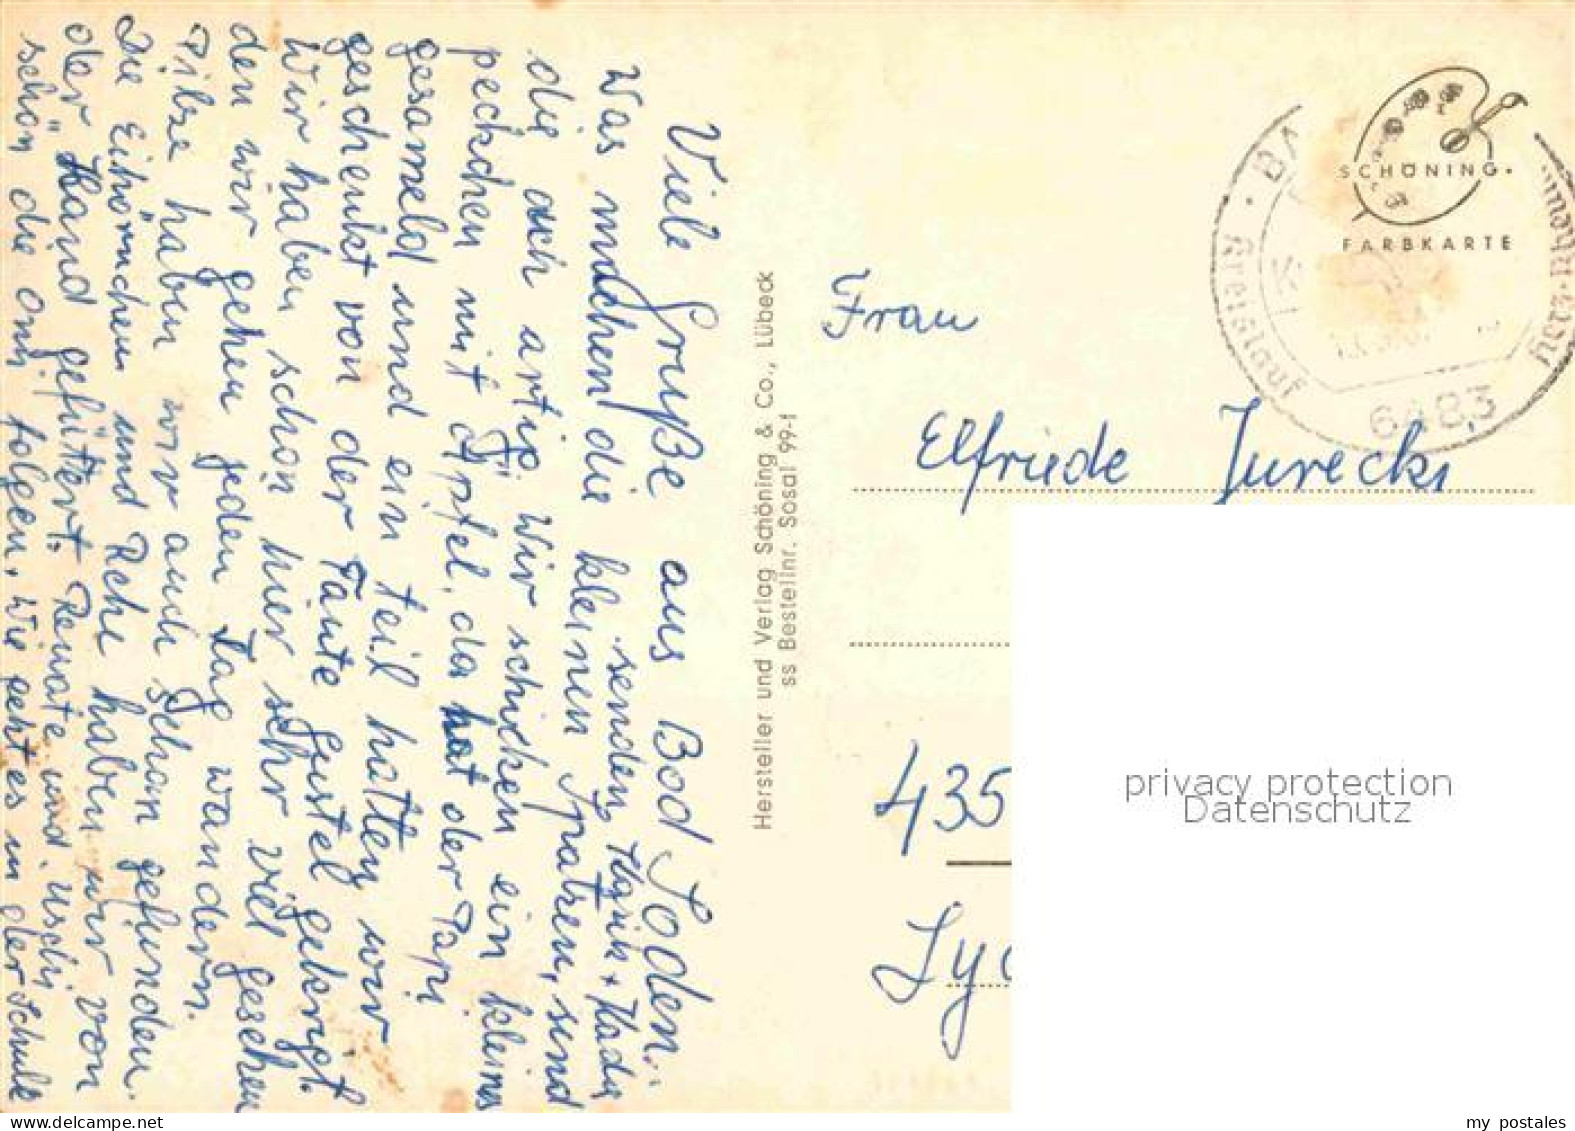 Viele Grüße aus Bad Soden.
senden
Was machen die kleinen Spatzen, sind
die auch artig. Wir schicken ein kleines
peckchen mit Äpfel, das hat der Papi
gesameld und ein teil hatten wir
geschenkt von der Tante Gustel gekrigt.
Wir haben schon hier sehr viel gesehen
den wir gehen jeden Tag wandern.
Pilze haben wir auch schon gefunden.
Die Eihörnchen und Rehe haben wir von
der Hand gefüttert. Renate und Uschi
schön die Omi folgen, wie geht es in der Schule
Hersteller und Verlag Schöning & Co., Lübeck
ss Bestellnr. Sosal 99-f
SCHÖNING
FARBKARTE
BA
Herz-
Kreislauf
6483
Frau
Elfriede Jurecki
435
Lyc
privacy protection
Datenschutz
my postales
www.delcampe.net